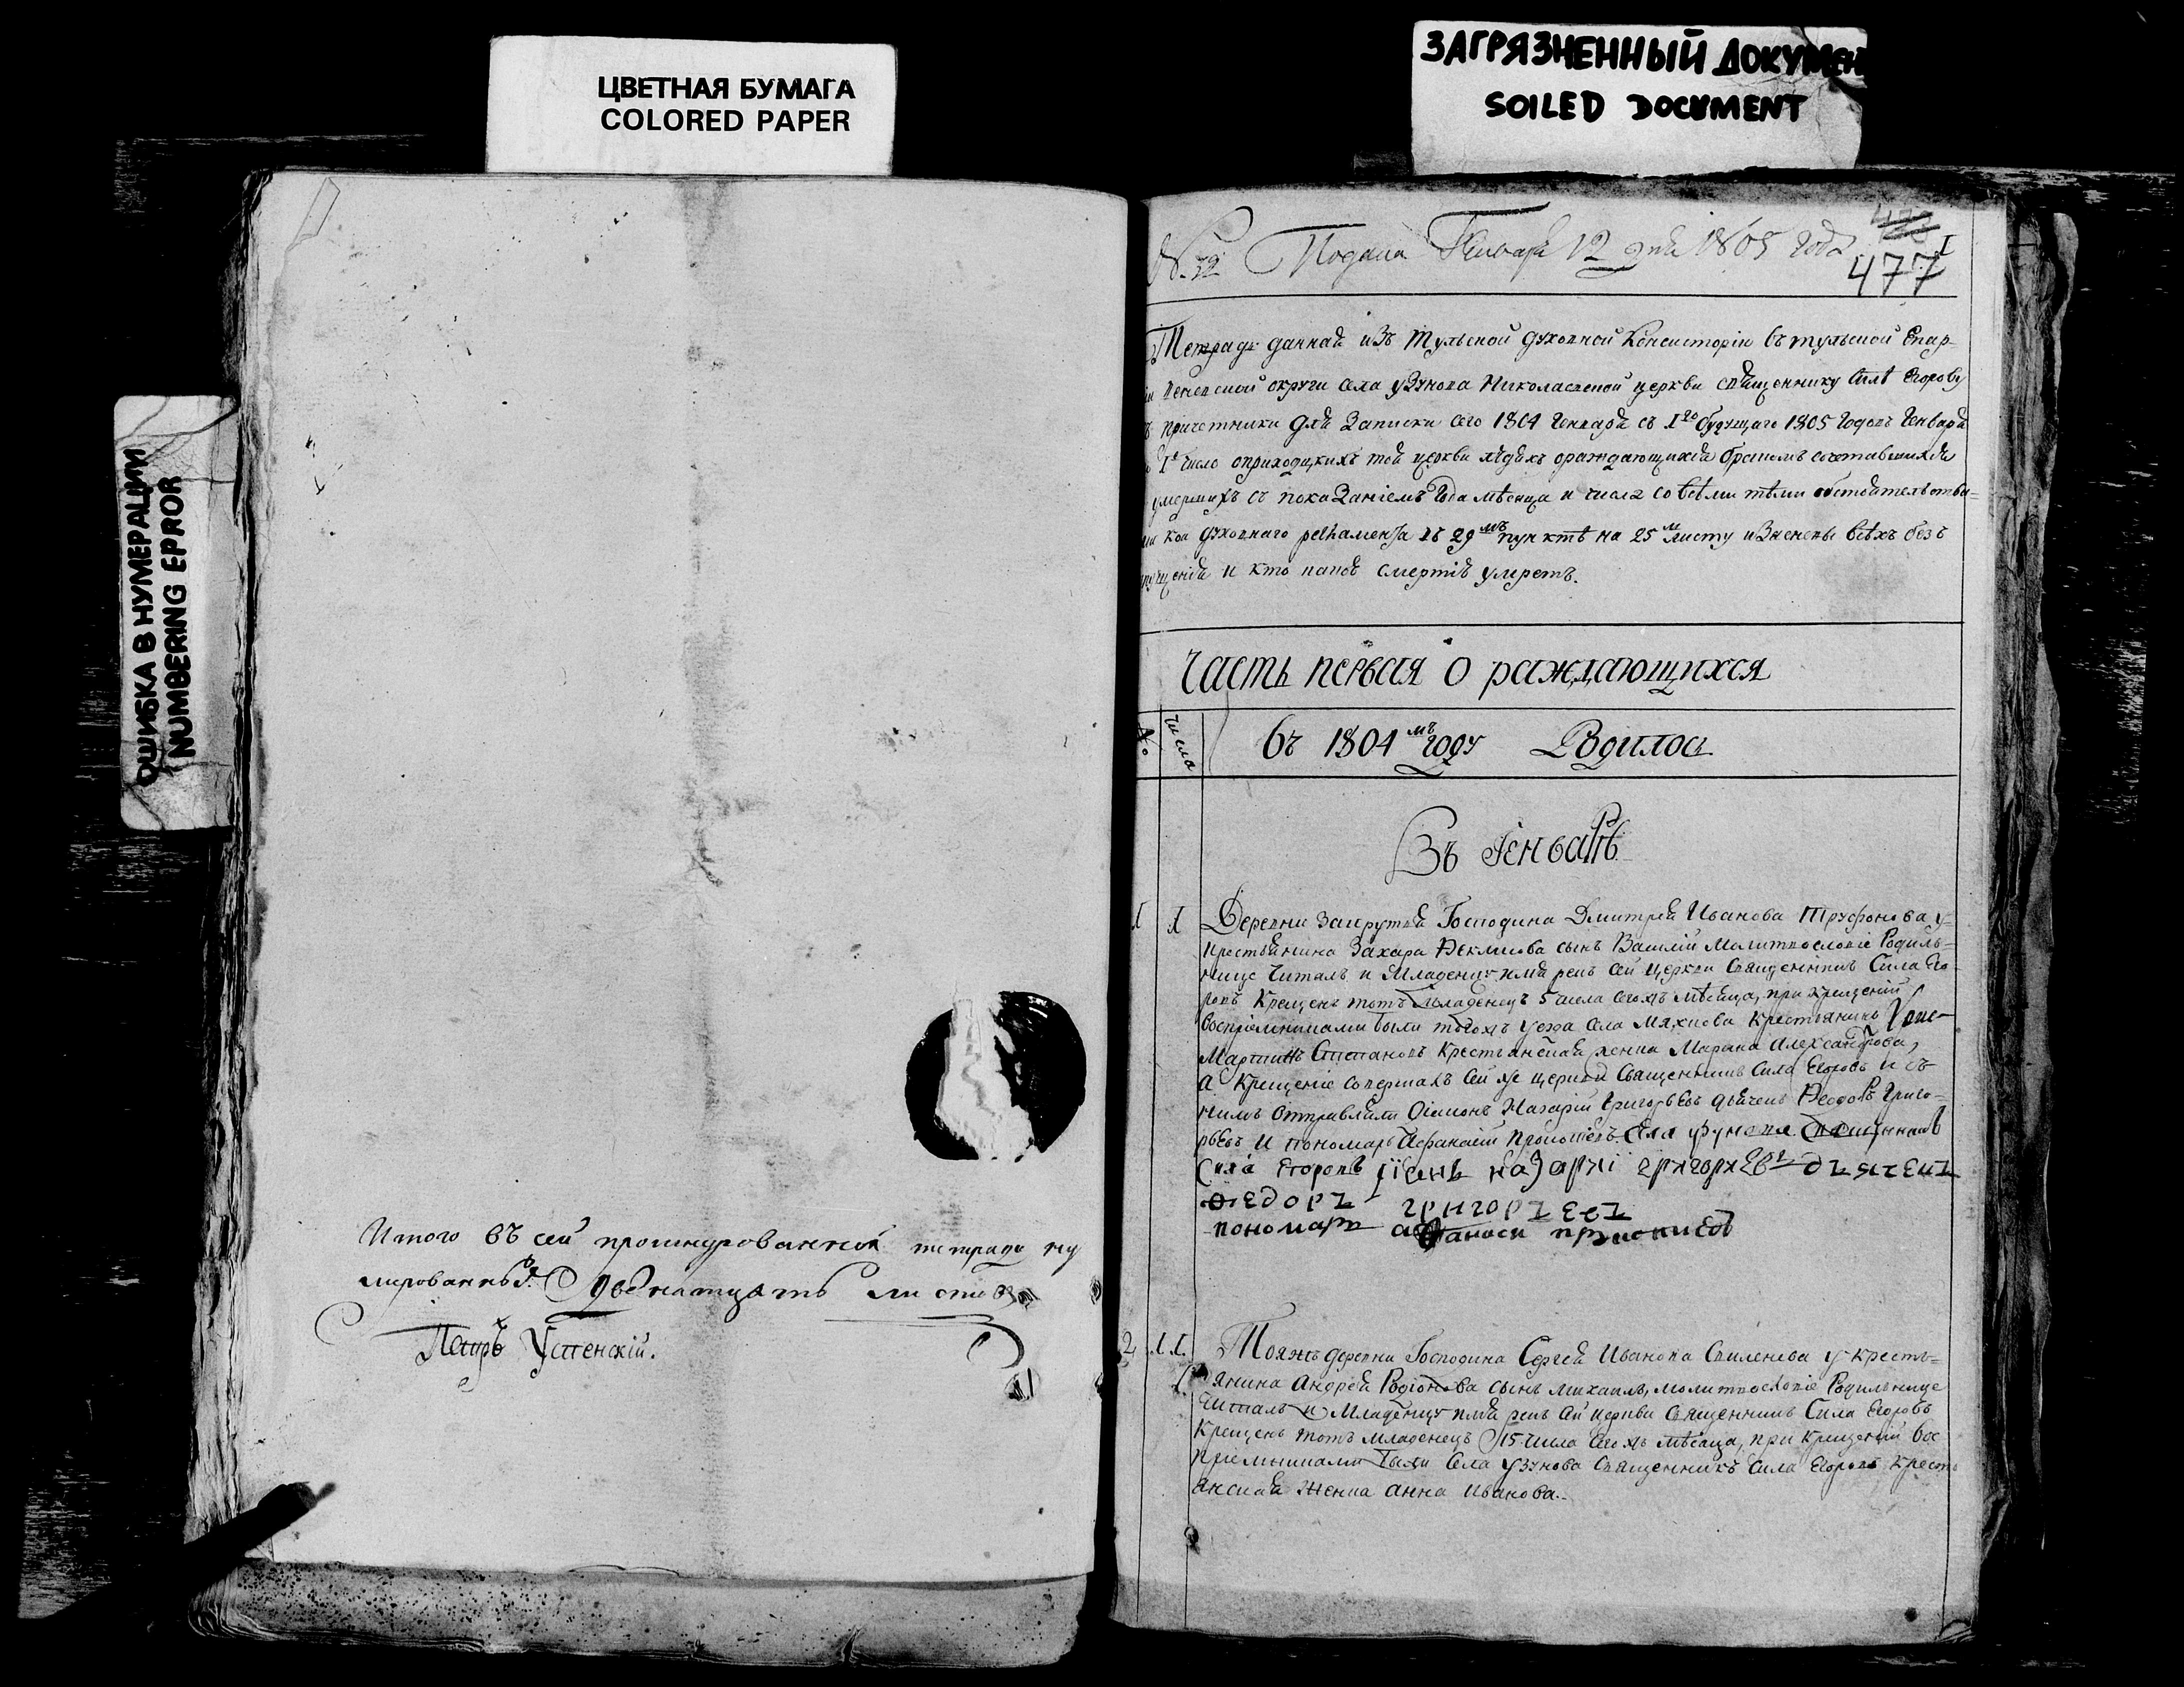 ЦВЕТНАЯ БУМАГА
COLORED PAPER
ЗАГРЯЗНЕННЫЙ ДОКУМЕН
SOILED DOCUMENT
ОШИБКА В НУМЕРАЦИИ
NUMBERING EPROR
Итого въ сей прошнурованной тетради ну
мерованныхъ двенатцать листовъ
Петръ Успенскій.
Подана Генваря 12 дня 1805 года
I
477
Тетрадь данная изъ Тульской духовной Консисторіи въ тульской Епар-
округи села узунова Николаевской церкви священнику Силѣ Егорову
причетники для Записки сего 1804 Генваря съ Iго будущаго 1805 годовъ Генваря
I е число оприходскихъ той церкви людѣхъ ораждающихся бракомъ сочетавшихся
умершихъ съ показаніемъ Года мѣсяца и числа со всѣми тѣми обстоятельства=
кои духовнаго регламента въ 29мъ пунктѣ на 25м листу изяснены всѣхъ безъ
и кто какою смертію умретъ.
Часть первая о раждающихся
№. числа
Въ 1804мъ году Родилось
Въ Генварѣ
1 1 Деревни Господина Дмитрея Иванова Труфонова у-
крестьянина Захара сынъ Василій Молитвословіе Родиль-
нице Читалъ и Младенцу имя рекъ сей церкви Священникъ Сила Его-
ровъ Крещенъ тотъ Младенецъ 5 числа Сегожъ мѣсяца, при крещеній
воспріемниками были тогожъ уезда села Мяхкова Крестьянинъ
Мартинъ Степановъ Крестьянская женка Марина Александрова,
а Крещеніе совершалъ сей же церкви Священникъ Сила Егоровъ и съ
нимъ отправляли Діаконъ Назарій Григорьевъ дьячекъ Ѳеодоръ Григо-
рьевъ И пономарь Афанасій Прокофіевъ. Села узунова Священникъ
Сила Егоровъ діаконъ назариі григорьевъ дьячекъ
ѳедоръ григорьевъ
пономарь аѳанаси
2 11. Тояжъ деревни Господина Сергея Иванова у крестъ=
янина Андрея Родіонова сынъ михаилъ, молитвословіе Родильнице
Читалъ и Младенцу имя рекъ сей церкви Священникъ Сила Егоровъ
Крещенъ тотъ младенецъ 15 числа Сегожъ мѣсяца, при крещеній вос
пріемниками были Села узунова Священникъ Сила Егоровъ кресть
янская Женка Анна Иванова.